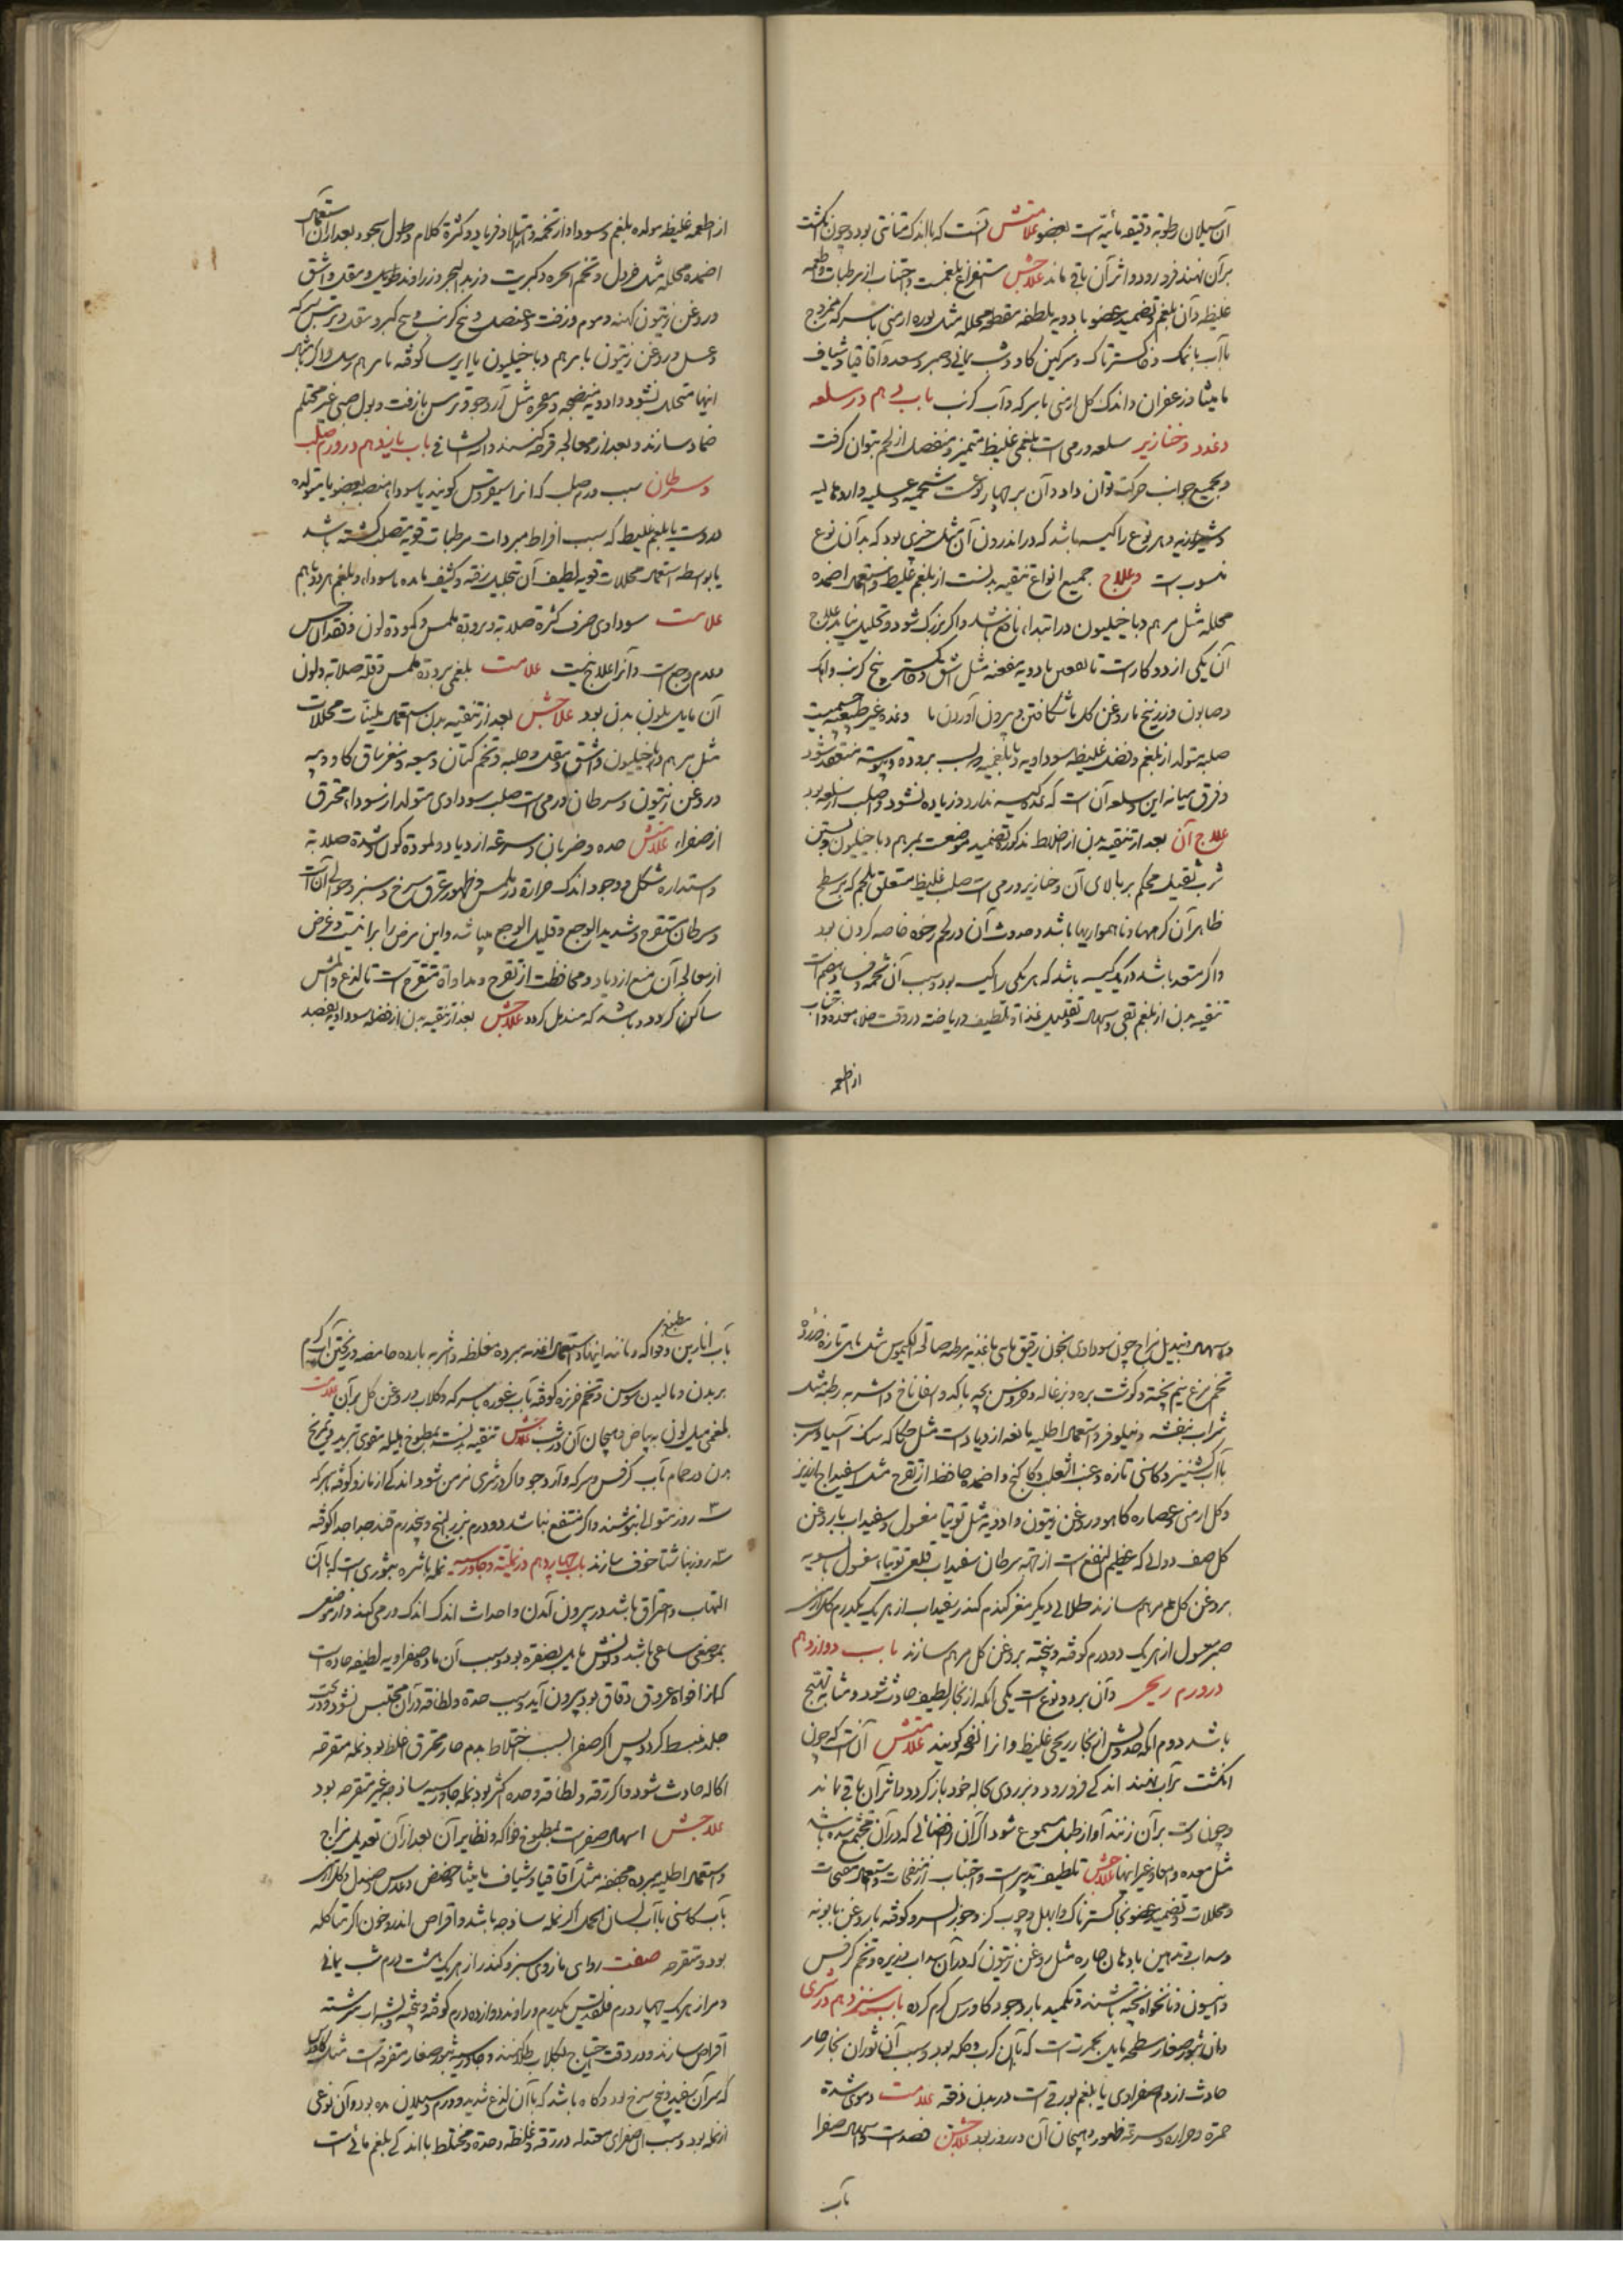 آن سیلان رطوبة رقیقه مائیه است بعضو علامتش آنست که با اندک متانتی بود و چون انگشت
بر آن نهند فرو رود و اثر آن باقی ماند علاجش استفراغ بلغمست و اجتناب از مرطبات و اطعمه
غلیظه و آن بلغم و تضمید عضو بادویه ملطفه مقطعه محلله مثل بوره ارمنی با سرکه ممزوج
بآب یا نمک و خاکستر تاک و سرکین کاو و شب یمانی و صبر و سعد و آقاقیا و شیاف
مامیثا و زعفران و اندک کل ارمنی با سرکه و آب کرنب باب دهم در سلعه
و غدد و خنازیر سلعه ورمی است بلغمی غلیظ متمیز و منفصل از لحم بتوان کرفت
و بجمیع جوانب حرکت توان داد و آن بر چهار نوعست شحمیه و عسلیه و اردهالیه
و شیرازیه و هر نوع را کیسه باشد که در اندرون آن مثل چیزی بود که بدآن نوع
منسوب است و علاج جمیع انواع تنقیه بدنست از بلغم غلیظ و استعمال اضمده
محلله مثل مرهم دیاخیلیون در ابتدا نافع باشد و اکر بزرک شود و تحلیل نیابد علاج
آن یکی از دو کارست تا بعفن بادویه معفنه مثل اشق و خاکستر بیخ کرنب و اهک
و صابون و زرنیخ با روغن کل یا شکافتن و بیرون آوردن با و غده غیر طبیعیه جسمیست
صلبه متولد از بلغم و فضل غلیظه سوداویه یا بلغمیه بسبب برودة و یبوسة منعقد شود
و فرق میانه این و سلعه آن است که غده کیسه ندارد و زیاده نشود و اصلب از سلعه بود
علاج آن بعد از تنقیه بدن از اخلاط مذکوره تضمید موضعست بمرهم دیاخیلیون و بستن
سرب ثقیل محکم بر بالای آن و خنازیر ورمی است صلب غلیظ متعلق بلحم که بر سطح
ظاهر آن کرهها و ناهمواریها باشد و حدوث آن در لحم رخوه خاصه کردن بود
و اکر متعدد باشد در یک کیسه باشد که هر یکی را کیسه بود و سبب آن تخمه و فساد هضم است
تنقیه بدن از بلغم بقی و اسهال و تقلیل غذا و تلطیف و ریاضة در وقت خلاء معده و اجتناب
از اطعمه
از اطعمه غلیظه مولده بلغم و سودا و از تخمه و امتلا و فریاد و کثرة کلام و طول سجود بعد از آن استعمال
اضمده محلله مثل خردل و تخم انجره و کبریت و زبد البحر و زراوند طویل و مقل و اشق
و روغن زیتون کهنه و موم و زفت و عنصل و بیخ کرنب و بیخ کبر و مقل و ترمس سرکه
و عسل و روغن زیتون با مرهم دیاخیلیون یا ایرسا کوفته با مرهم رسل و اکر بنهر
اینها متحلل نشود و ادویه منضجه و مفجره مثل آرد جو و ترمس با زفت و بول صبی غیر محتلم
ضماد سازند و بعد از معالجه قرحه کنند و الله الشافی باب یازدهم در ورم صلب
و سرطان سبب ورم صلب که انرا سقیروس کویند یا سودا منصبه بعضو یا متولده
دروست یا بلغم غلیظ که بسبب افراط مبردات مرطبات قویه متصلب کشته باشد
یا بواسطه استعمال محللات قویه لطیف آن تحلیل رفته و کثیف مانده یا سودا و بلغم هر دو باهم
علامت سوداوی صرف کثرة صلابة و برودة ملمس و کمودة لون و فقدان حس
و عدم وجع است و آنرا علاج نیست علامت بلغمی برودة ملمس و قلة صلابه و لون
آن مایل بلون بدن بود علاجش بعد از تنقیه بدن استعمال ملینات محللات
مثل مرهم دیاخیلیون و اشق و مقل و حلبه و تخم کتان و میعه و مغز ساق کاو و پیه
و روغن زیتون و سرطان ورمی است صلب سوداوی متولد از سودا محترق
از صفراء علامتش حده و ضربان و سرعة ازدیاد و کمودة لون و شدة صلابة
و استداره شکل و وجود اندک حرارة در ملمس و ظهور عروق سرخ و سبز در حوالی آنست
و سرطان متقرح و شدید الوجع و قلیل الوجع میباشد و این مرض را برانیست و غرض
از معالجه آن منع ازدیاد و محافظت از تقرح و مداواة متقرح است تا لذع و المش
ساکن کردد و باشد که مندمل کردد علاجش بعد از تنقیه بدن از فضله سوداویه بفصد
و اسهال و تبدیل مزاج چون سوداوی بخون رقیق مائی باغذیه مرطبه صالحة الکیموس مثل ماهی تازه و زرده
تخم مرغ نیم پخته و کوشت بره و بزغاله و خروس بچه با کدو و اسفاناخ و اشربه رطبه مثل
شراب بنفشه و نیلوفر و استعمال اطلیه مانعه ازدیادست مثل حکاکه سنک آسیا و سرب
بآب کشنیز و کاسنی تازه و عنب الثعلب و کاکنج و اضمده حافظ از تقرح مثل اسفیداج با شیر
و کل ارمنی و عصاره کاهو و روغن زیتون و ادویه مثل توتیا مغسول و سفیداب با روغن
کل صف دوائی که عظیم النفع است از جهة سرطان سفیداب قلعی توتیاء مغسول بالسویه
بروغن کل مرهم سازند طلائی دیکر مغز کندم کندر سفیداب از هر یک یکدرم کل ارمنی
صبر مغسول از هر یک دو درم کوفته و بیخته بروغن کل مرهم سازند باب دوازدهم
در ورم ریحی و آن بر دو نوع است یکی انکه از بخار لطیف حادث شود و مشابه تهیج
باشد دوم انکه حدوثش از بخار ریحی غلیظ و انرا نفخه کویند علامتش آن است که چون
انکشت بر آن نهند اندکی فرو رود و بزودی بحاله خود باز کردد و اثر آن باقی نماند
و چون دست برآن زنند آواز طبل مسموع شود اکر آن در فضائی که در آن مجتمع شده باشد
مثل معده و امعا و غیر اینها علاجش تلطیف تدبیرست و اجتناب از منفخات و استعمال مفشیات
و محللات و تضمید عضو بخاکستر تاک و ابهل و چوب کز و جوز السرو کوفته با روغن بابونه
و سداب و تدهین بادهان حاره مثل روغن زیتون که در آن سداب و زیره و تخم کرفس
و انیسون و نانخواه پخته باشند و تکمید بارد جو و کاورس کرم کرده باب سیزدهم در شری
و آن بثور صغار مسطحه مایل بحمرت است که با آن کرب و حکه بود و سبب آن ثوران بخار حار
حادث از دم صفراوی یا بلغم بورقی است در بدن دفعة علامت دموی شدة
حمرة و حراره و سرعة ظهور و هیجان آن در روز بود علاجش فصدست و اسهال صفرا
بآب
بآب انارین و مطبوخ فواکه و مانند اینها و استعمال اغذیه مبرده مغلظه و اشربه بارده حامضه و ریختن آب کرم
بر بدن و مالیدن سوس و تخم خربزه کوفته بآب غوره یا سرکه و کلاب و روغن کل برآن علامت
بلغمی میل لون به بیاض و هیجان آن در شب علاجش تنقیه بدنست بمطبوخ هلیله مقوی بتربد و تمریخ
بدن در حمام بآب کرفس و سرکه و آرد جو و اکر در شری مزمن شود اندکی از مازو کوفته با سرکه
سه روز متوالی بنوشند و اکر منتفع نباشد دو درم بزر البنج و پنجدرم قند جدا جدا کوفته
سه روز بناشتا خوف سازند باب چهاردهم در نمله و جاورسیه نمله باشره بثوری است که با آن
التهاب و احتراق باشد در بیرون آمدن و احداث اندک اندک ورمی کند و از موضعی
بموضعی ساعی باشد و لونش مایل بصفره بود و سبب آن ماده صفراویه لطیفه حاده است
که از افواه عروق دقاق بود بیرون آید و بسبب حدة و لطافة در آن محتبس نشود و در تحت
جلد منبسط کردد پس اکر صفرا بسبب اختلاط بدم حار محترق اغلظ بود نمله متقرحه
اکاله حادث شود و اکر رقة و لطافة وحده اکثر بود نمله جاورسیه ساذجه غیر متقرحه بود
علاجش اسهال صفراست بمطبوخ فواکه و نظایر آن بعد از آن تعدیل مزاج
و استعمال اطلیه مبرده مجففه مثل آقاقیا و شیاف مامیثا و حضض و عدس و صندل و کل ارمنی
بآب کاسنی یا آب لسان الحمل اکر نمله ساذجه باشد و اقراص اندروخون اکر متاکله
بود و متقرحه صفت دوای مازوی سبز و کندر از هر یک هشت درم شب یمانی
و مر از هر یک چهار درم قلقدیس یکدرم زراوند دوازده درم کوفته و بیخته بشراب سرشته
اقراص سازند و در وقت احتیاج بکلاب طلا کنند و جاورسیه بثور صغار متفرقه است مثل کاورس
که سر آن سفید و بیخ سرخ بود و کاه باشد که با آن لذع شدید و ورم و سیلان مده بود و آن نوعی
از نمله بود و سبب آن صفرای معتدله در رقة و غلظة و حدة و مختلط با اندکی بلغم مائی است